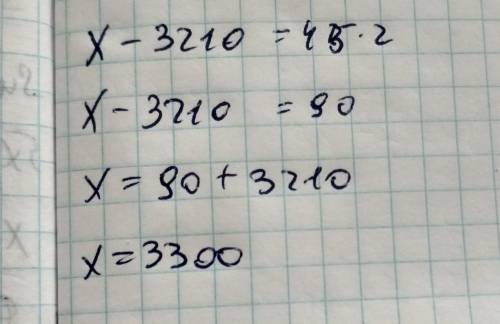 x - 3210 = 45·2
x - 3210 = 90
x = 90 + 3210
x = 3300